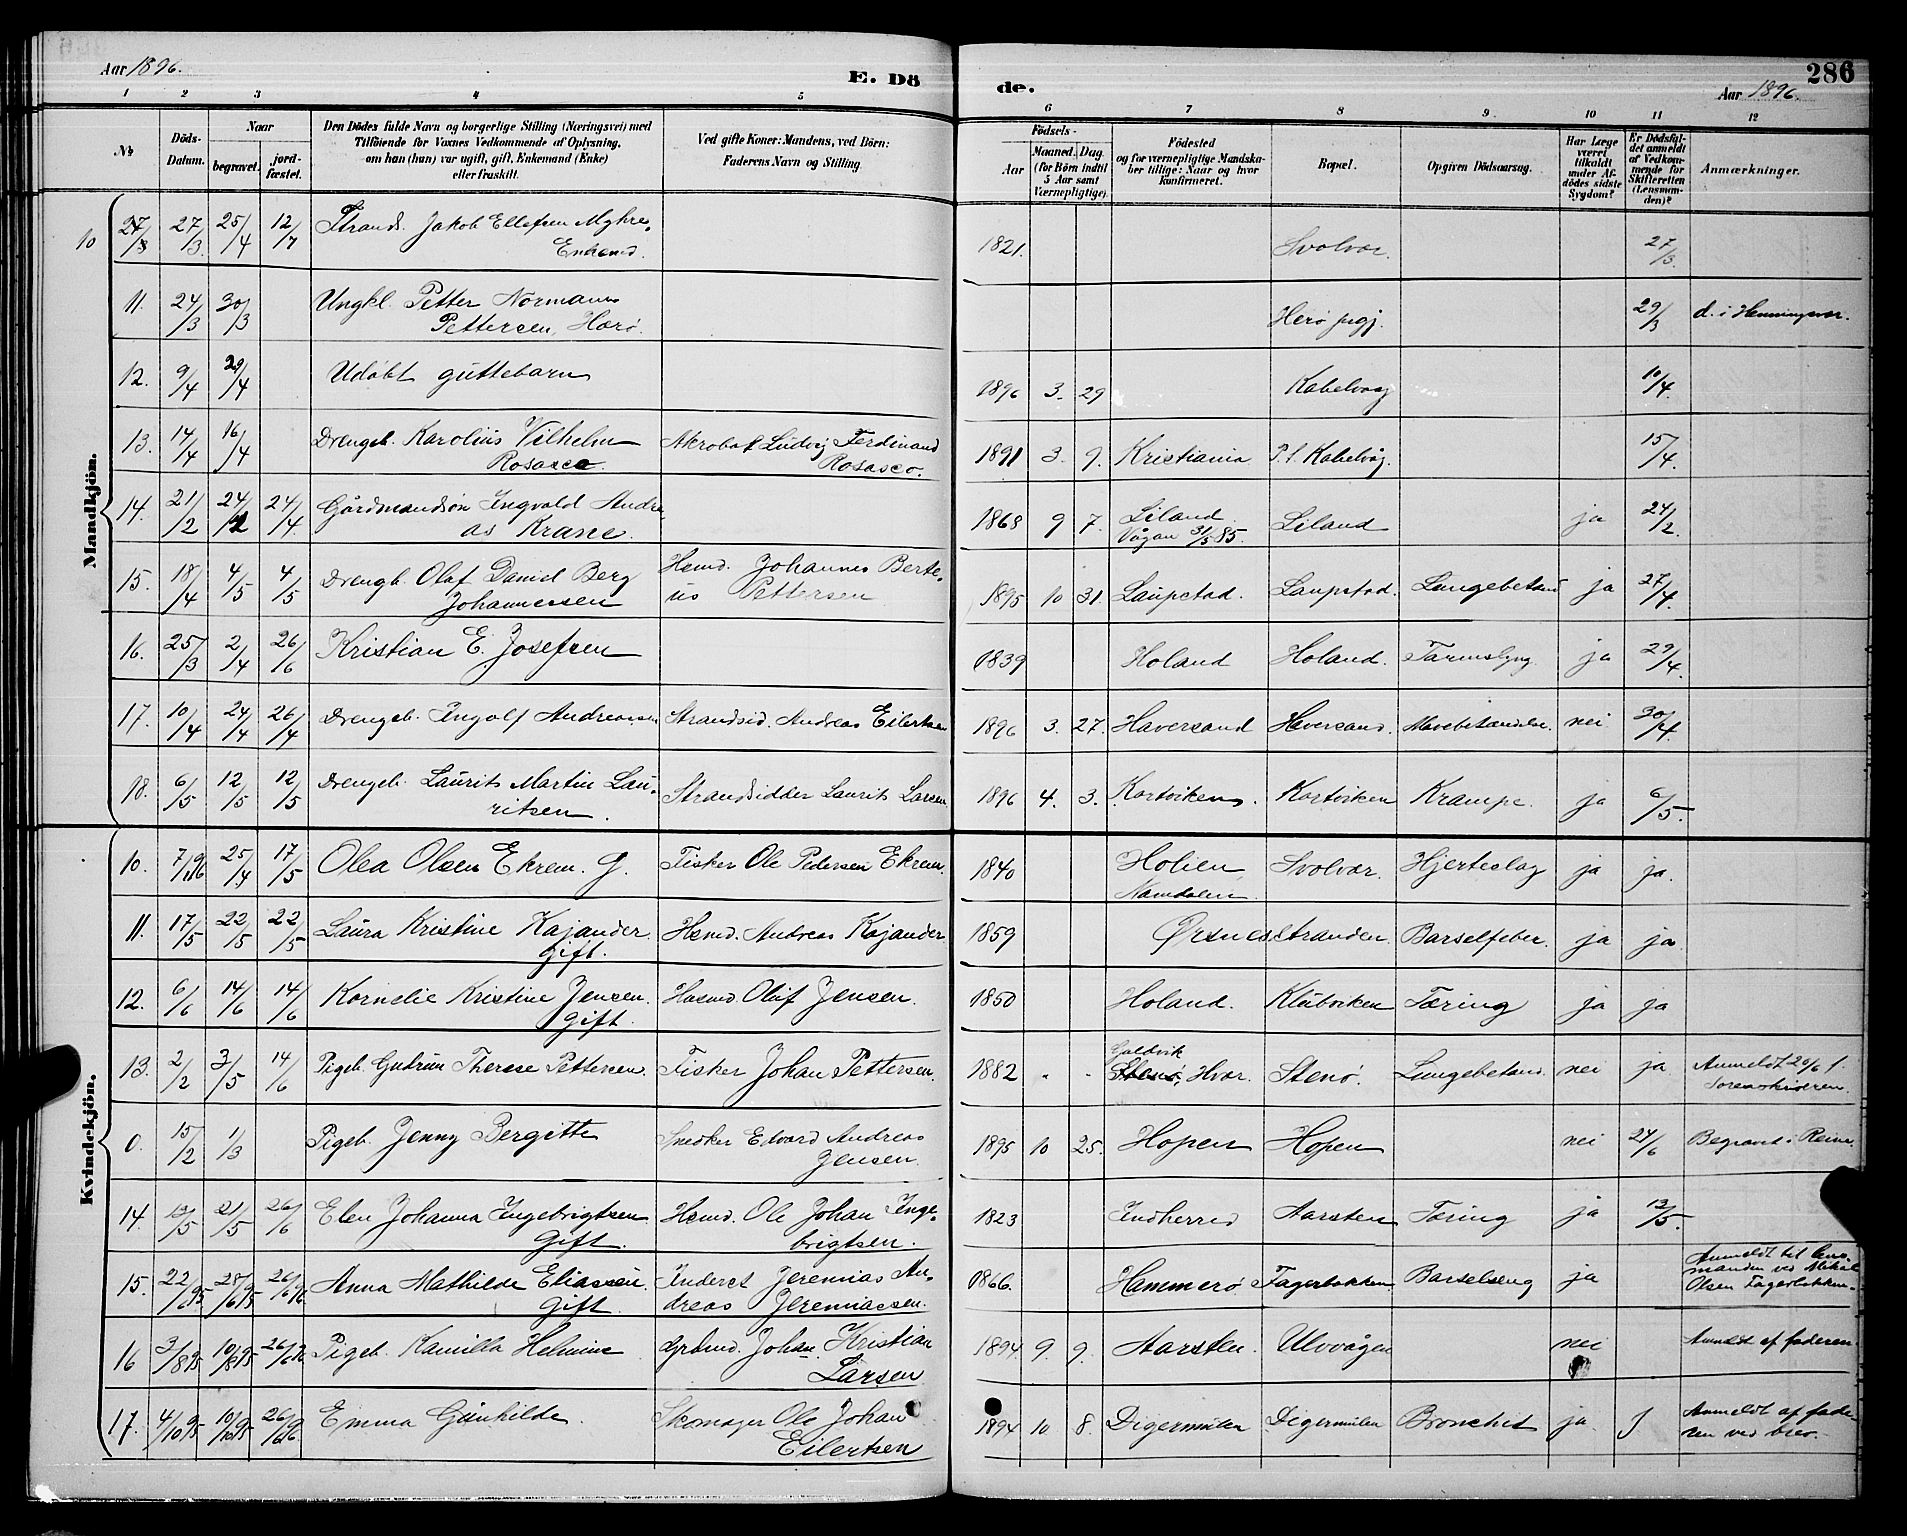 Aar 1896.
E. Dö
de.
286
Aar 1896.
1 2 3 4 5 6 7 8 9 10 11 12
№
Döds-
Datum.
Naar
begravet.
jord-
fæstet.
Den Dödes fulde Navn og borgerlige Stilling (Næringsvei) med
Tilföiende for Voxnes Vedkommende af Oplysning,
om han (hun) var ugift, gift, Enkemand (Enke)
eller fraskilt.
Ved gifte Koner: Mandens, ved Börn:
Faderens Navn og Stilling.
Födsels-
Aar
Maaned. Dag
(for Börn indtil
5 Aar samt
Værnepligtige).
Födested
og for værnepligtige Mandska-
ber tillige: Naar og hvor
konfirmeret.
Bopæl.
Opgiven Dödsaarsag.
Har Læge
været
tilkaldt
under Af-
dödes sidste
Sygdom?
Er Dödsfal-
det anmeldt
af Vedkom-
mende for
Skifteretten
(Lensman-
den)?
Anmærkninger.
Mandkjön.
10 27/3 27/3 25/4 12/7 Strands. Jakob Ellefsen Myhre. 1821. Svolvær. 27/3.
Enkemd.
11. 24/3 30/3 Ungkl. Petter Normann Herø prgj. 29/3 d. i Henningsvær.
Pettersen, Herø.
12. 9/4 29/4 Udøbt guttebarn 1896 3. 29 Kabelvaag 10/4.
13. 14/4 16/4 Drengeb. Karolius Vilhelm Akrobat Ludvig Ferdinand 1891 3. 9. Kristiania P.t. Kabelvåg. 15/4.
Rosasco. Rosasco.
14. 21/2 24/2 24/4. Gårdmandsøn Ingvald Andre- 1868 9 7. Liland Liland ja 24/2.
as Krane. Vågan 31/5 85.
15. 18/4 4/5 4/5 Drengb. Olaf Daniel Berg Hemd. Johannes Berte- 1895 10 31. Laupstad. Laupstad. Lungebetænd ja 27/4.
Johannessen us Pettersen
16. 25/3 2/4 26/6 Kristian E. Josefsen 1839 Holand Holand. Tarmslyng. ja 29/4.
17. 10/4 24/4 26/4 Drengeb. Ingolf Andreassen Strandsid. Andreas Eilertsen 1896 3. 27. Haversand Haversand. Mavebetændelse. nei 30/4.
18. 6/5 12/5 12/5 Drengeb. Laurits Martin Lau- Strandsidder Laurits Larsen 1896 4. 3. Kortviken. Kortviken Krampe. ja 6/5.
ritsen.
Kvindekjön.
10. 25/4 17/5 Olea Olsen Ekrem. G. Fisker Ole Pedersen Ekrem. 1840 Holien Svolvær. Hjerteslag ja ja.
Namdalen.
11. 17/5 22/5 22/5 Laura Kristine Kajander. Hemd. Andreas Kajander 1859 Ørsnesstranden. Barselfeber. ja ja
Gift.
12. 6/6 14/6 14/6 Kornelie Kristine Jensen. Husmd. Oluf Jensen. 1850 Holand. Klubviken Tæring ja ja
Gift.
13. 2/2 3/5 14/6 Pigeb. Gudrun Therese Pettersen. Fisker Johan Pettersen. 1882 Hvar. Stenø. Lungebetænd. nei ja Anmeldt 20/6 f.
0. 15/2 1/3 Pigeb. Jenny Bergitte Snedker Edvard Andreas 1895 10 25. Hopen Hopen nei 24/6 Begravet i Reine.
Jensen.
14. 21/5 26/6 Elen Johanna Ingebrigtsen Hemd. Ole Johan Inge- 1823 Indherred Aarsten Tæring ja 12/5.
Gift. brigtsen.
15. 22/6 95 28/6 95 26/6 96 Anna Mathilde Eliassen Inderst Jeremias An- 1866. Hammerø Fagerbakken. Barselseng ja Anmeldt til lens-
Gift. dreas Jeremiassen. manden ved Mikal
Olsen Fagerbakken.
16 3/8 95 10/8 95 26/6 96 Pigeb. Kamilla Helmine Johan Kristian 1894 9. 9. Aarsten. Ulvvågen nei Anmdt af faderen
Larsen
17. 4/10 95 10/10 95 26/6 96 Emma Gunhilde. Skomager Ole Johan 1894 10 8. Digermulen Digermulen Bronchit ja J Anmeldt af fade-
Eilertsen ren ved brev.